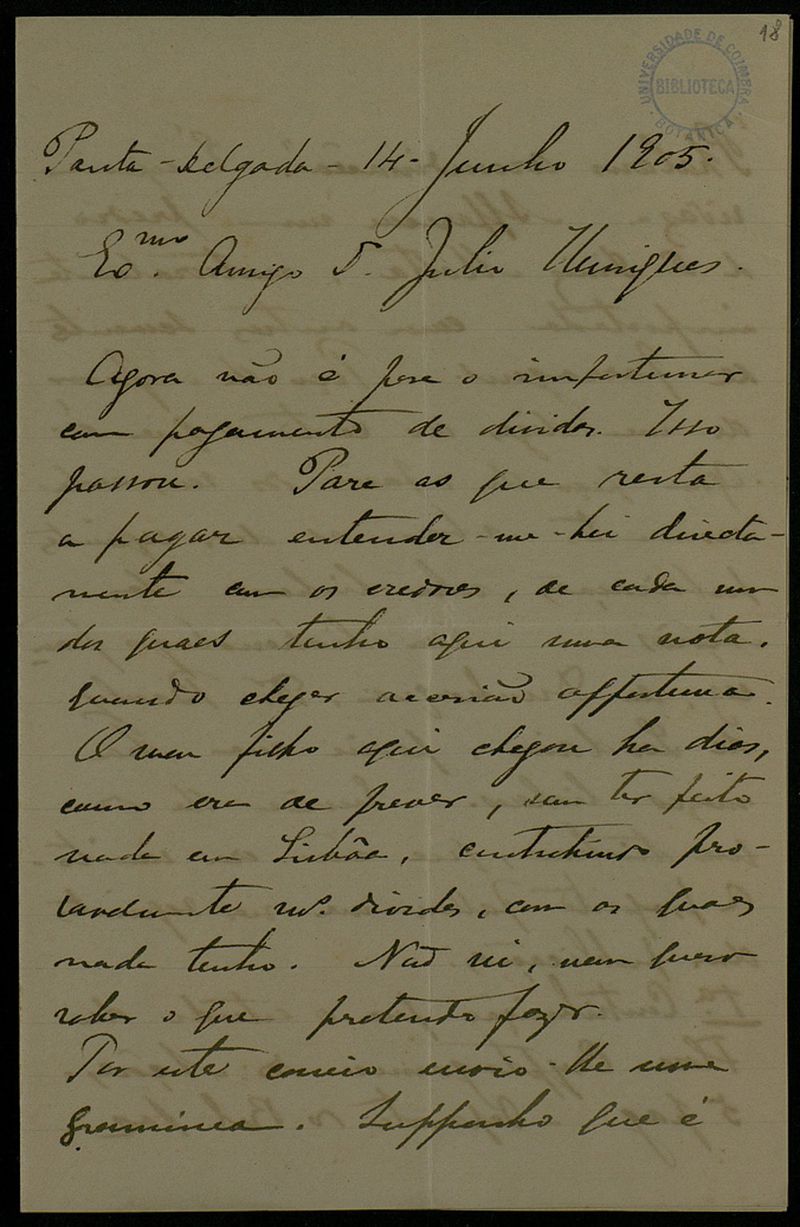 18
UNIVERSIDADE DE COIMBRA
BIBLIOTECA
BOTANICA
Ponta-Delgada - 14 - Junho 1905.
Exmo. Amigo Dr. Julio Henriques.
Agora não é para o importunar
com pagamento de dividas. Isso
passou. Para as que resta
a pagar entender-me-hei directa-
mente com os credores, de cada um
dos quaes tenho aqui uma nota,
quando chegar occasião opportuna.
O meu filho aqui chegou ha dias,
como era de prever, sem ter feito
nada em Lisbôa, contrahindo pro-
vavelmente dividas, com as quaes
nada tenho. Não sei, nem quero
saber o que pretende fazer.
Por este correio envio-lhe uma
graminea. Supponho que é